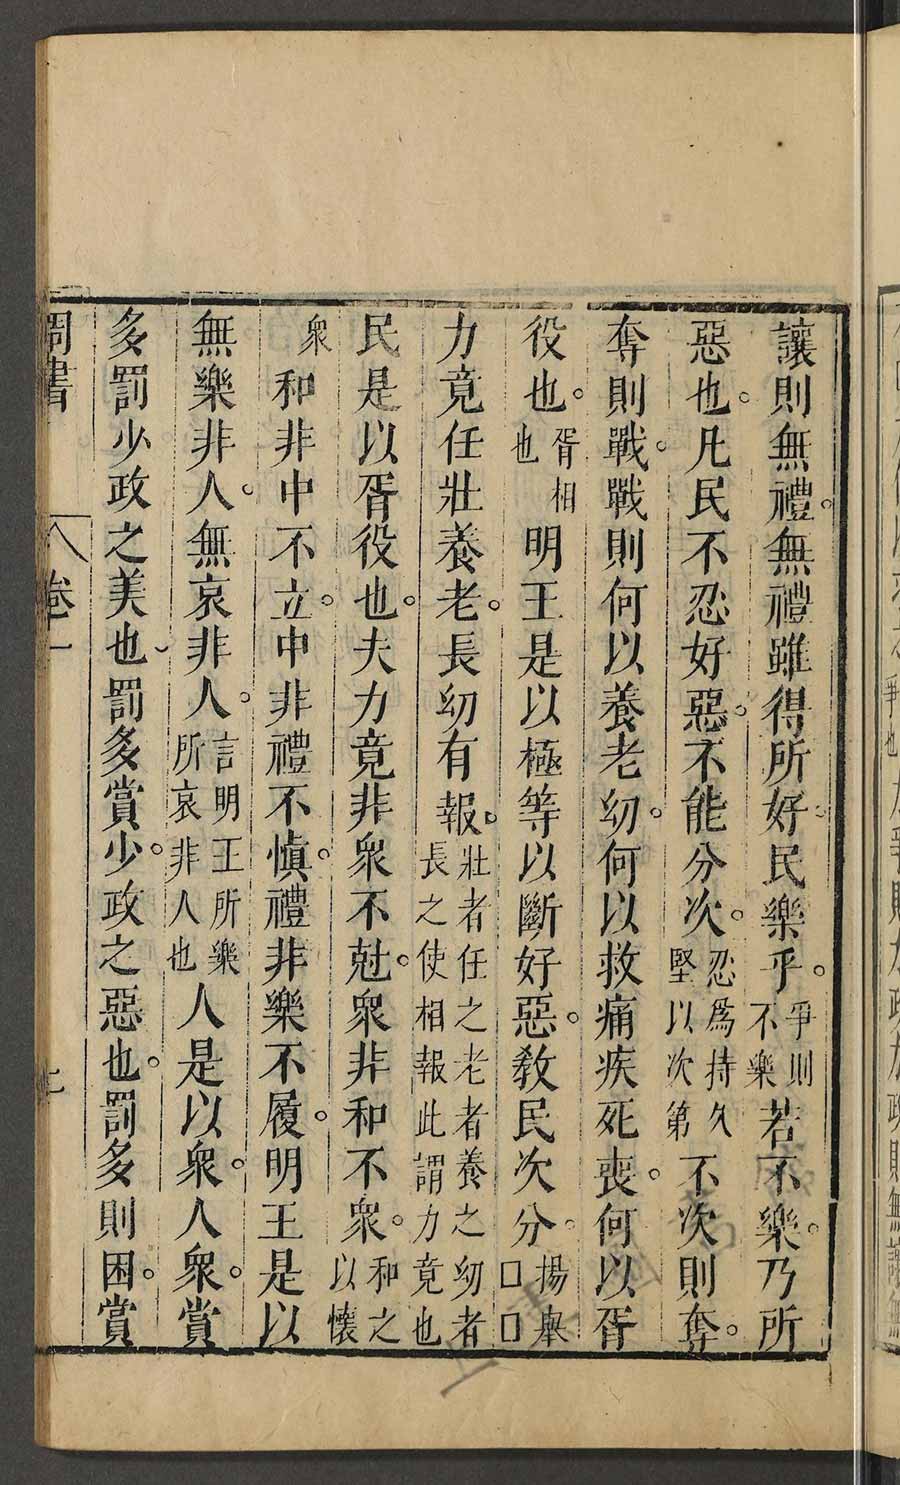 讓則無禮。無禮雖得所好。民樂乎。爭則不樂若不樂。乃所
惡也。凡民不忍好惡。不能分次。忍爲持久堅以次第不次則奪。
奪則戰。戰則何以養老幼。何以救痛疾死喪。何以胥
役也。胥相也明王是以極等以斷好惡。敎民次分。揚舉□□
力竟任壯養老。長幼有報。壯者任之老者養之幼者長之使相報此謂力竟也
民是以胥役也。夫力竟非衆不尅。衆非和不衆。和之以懷
衆和非中不立。中非禮不慎。禮非樂不履。明王是以
無樂非人。無哀非人。言明王所樂所哀非人也人是以衆。人衆。賞
多罰少政之美也。罰多賞少。政之惡也。罰多則困。賞
周書
卷一